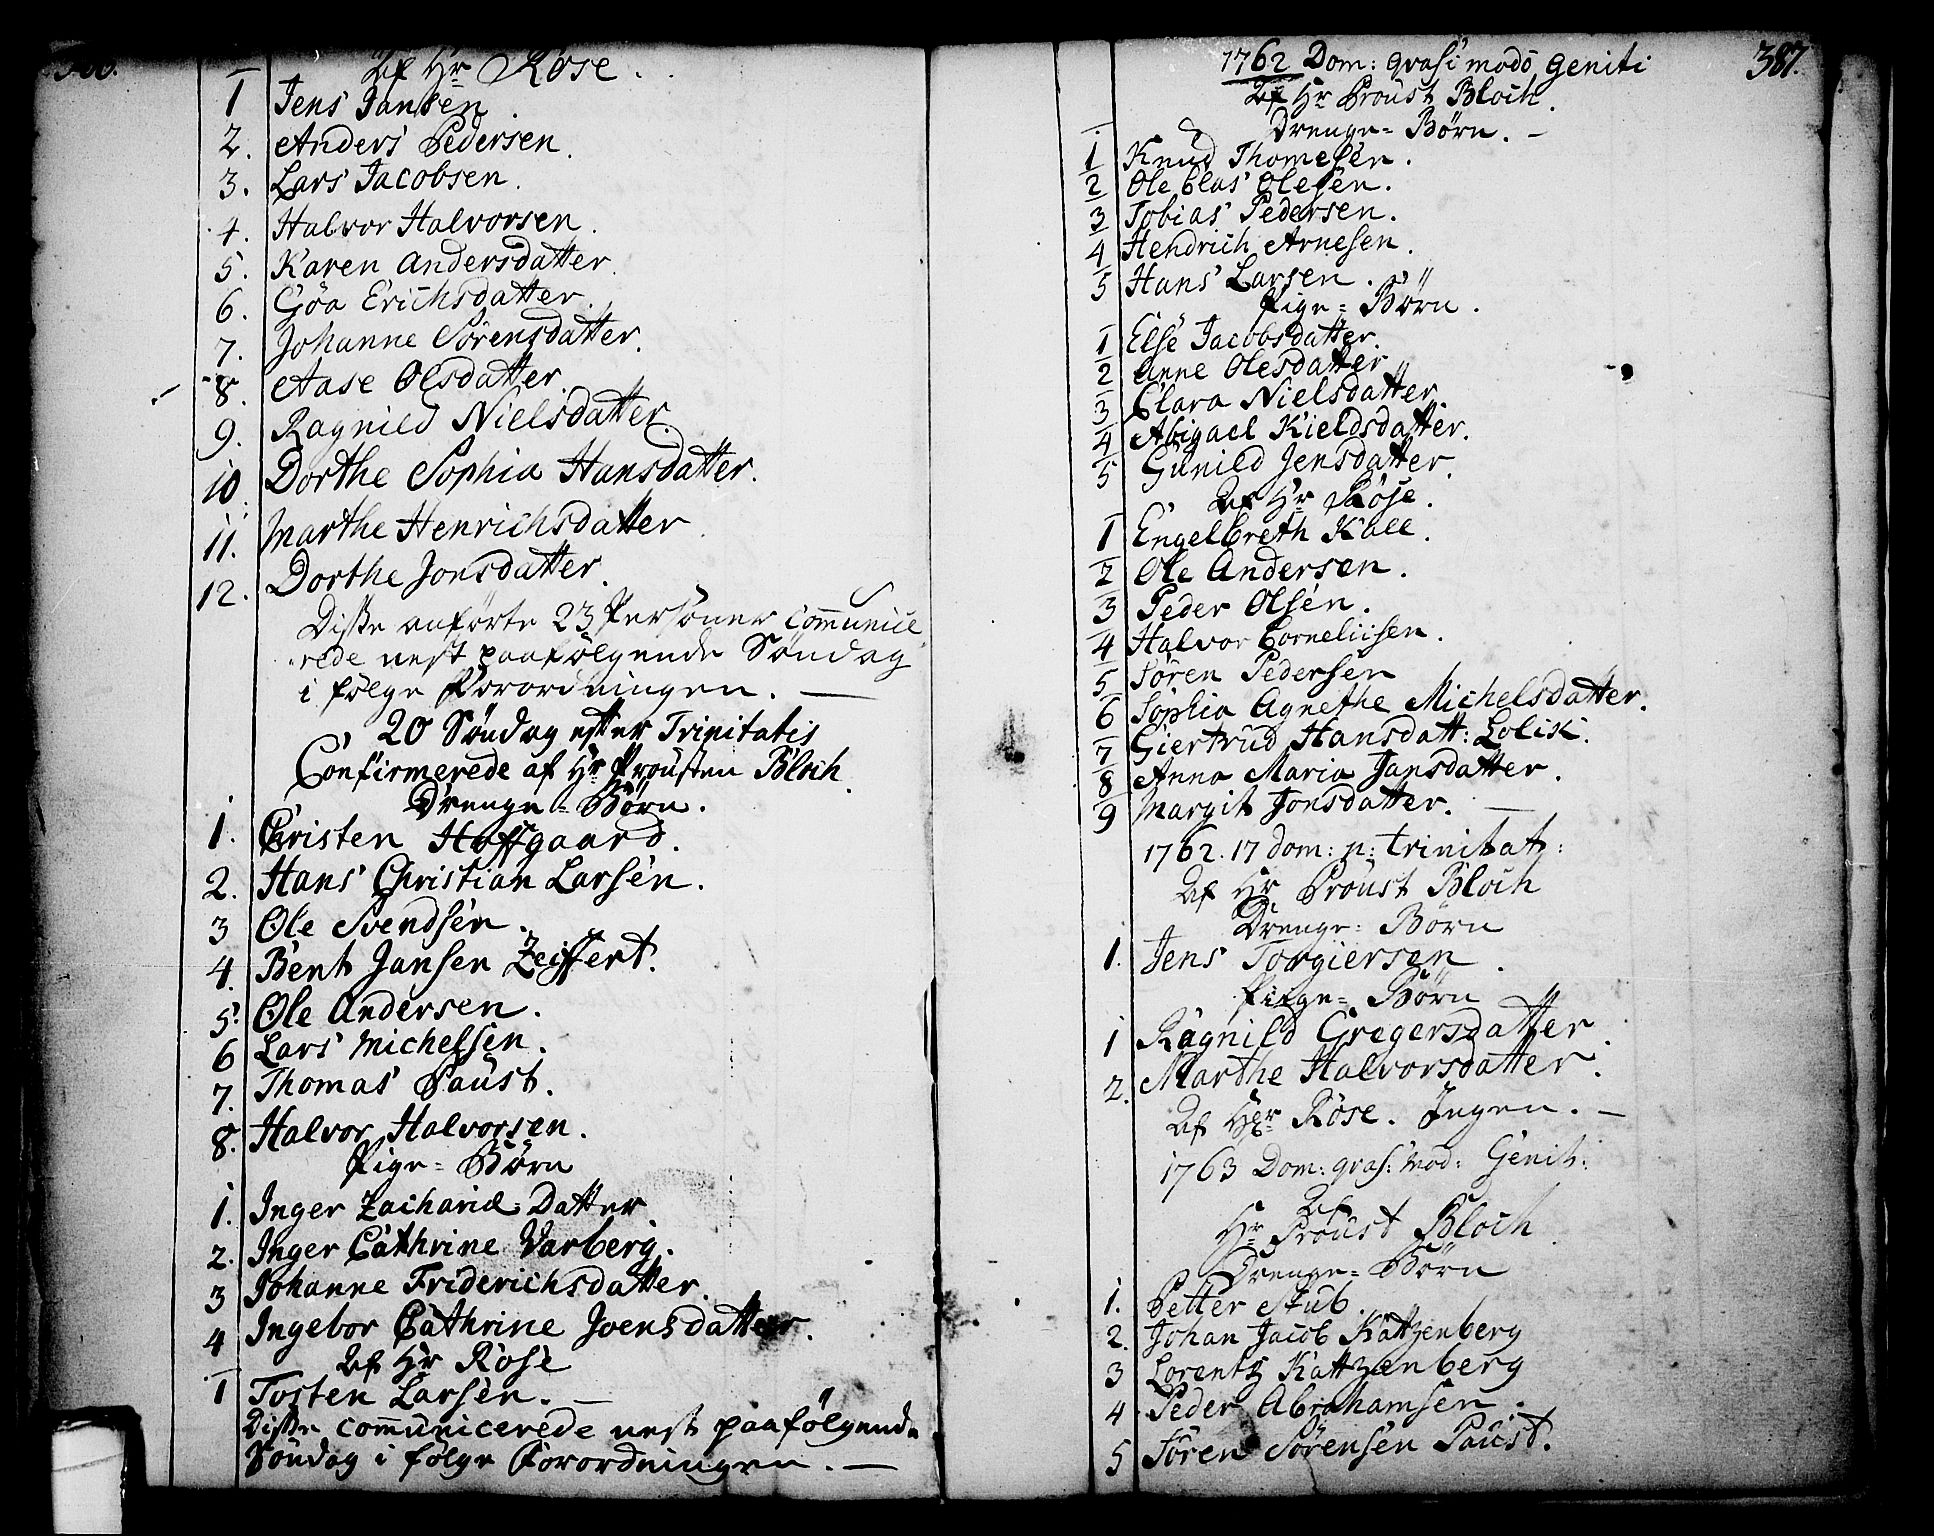 386.
Af Hr Röse.
1 Jens Jansen
2. Anders Pedersen.
3. Lars Jacobsen.
4. Halvor Halvorsen.
5. Karen Andersdatter.
6. Göa Erichsdatter.
7. Johanne Sörensdatter.
8. Aase Olsdatter.
9. Ragnild Nielsdatter.
10 Dorthe Sophia Hansdatter.
11. Marthe Henrichsdatter.
12. Dorthe Jonsdatter.
Diße anförte 23 Personer communice
rede nest paafölgende Söndag
i fölge Forordningen. —
20 Söndag efter Trinitatis
Confirmerede af Hr Prousten Bloch.
Drenge=Börn.
1. Christen Hoffgaard.
2. Hans Christian Larsen.
3 Ole Svendsen.
4. Bent Jansen Zeiffert.
5. Ole Andersen.
6 Lars Michelsen.
7. Thomas Paust.
8. Halvor Halvorsen.
Pige=Börn
1. Inger Zachariæ Datter.
2. Inger Cathrine Varberg.
3 Johanne Friderichsdatter.
4 Ingebor Cathrine Joensdatter.
Af Hr Röse
1 Tosten Larsen. —
Diße communicerede nest paafölgende
Söndag i fölge Forordningen. —
387.
1762 Dom: qvasi modo geniti
Af Hr Proust Bloch.
Drenge=Börn. —
1 Knud Thomesen.
2 Ole Clas Olesen.
3 Tobias Pedersen.
4 Hendrich Arnesen.
5 Hans Larsen.
Pige=Börn.
1 Else Jacobsdatter.
2 Anne Olesdatter
3 Clara Nielsdatter.
4 Abigael Kieldsdatter.
5 Gunild Jensdatter.
Af Hr Röse.
1 Engelbreth Kall.
2 Ole Andersen.
3 Peder Olsen.
4 Halvor Corneliisen.
5 Sören Pedersen
6 Sophia Agnethe Michelsdatter.
7 Giertrud Hansdatt: Lolik.
8 Anna Maria Jansdatter.
9 Margit Jonsdatter. —
1762. 17 dom: p: trinitat:
Af Hr Proust Bloch
Drenge=Börn
1. Jens Torgiersen.
Pige=Börn
1 Ragnild Gregersdatter.
2. Marthe Halvorsdatter.
Af Hr Röse. Ingen. —
1763 Dom: qvas: mod: Genit:
Af
Hr Proust Bloch.
Drenge=Börn
1. Petter Stub.
2. Johan Jacob Kattzenberg
3 Lorentz Kattzenberg
4 Peder Abrahamsen.
5 Sören Sörensen Paust.